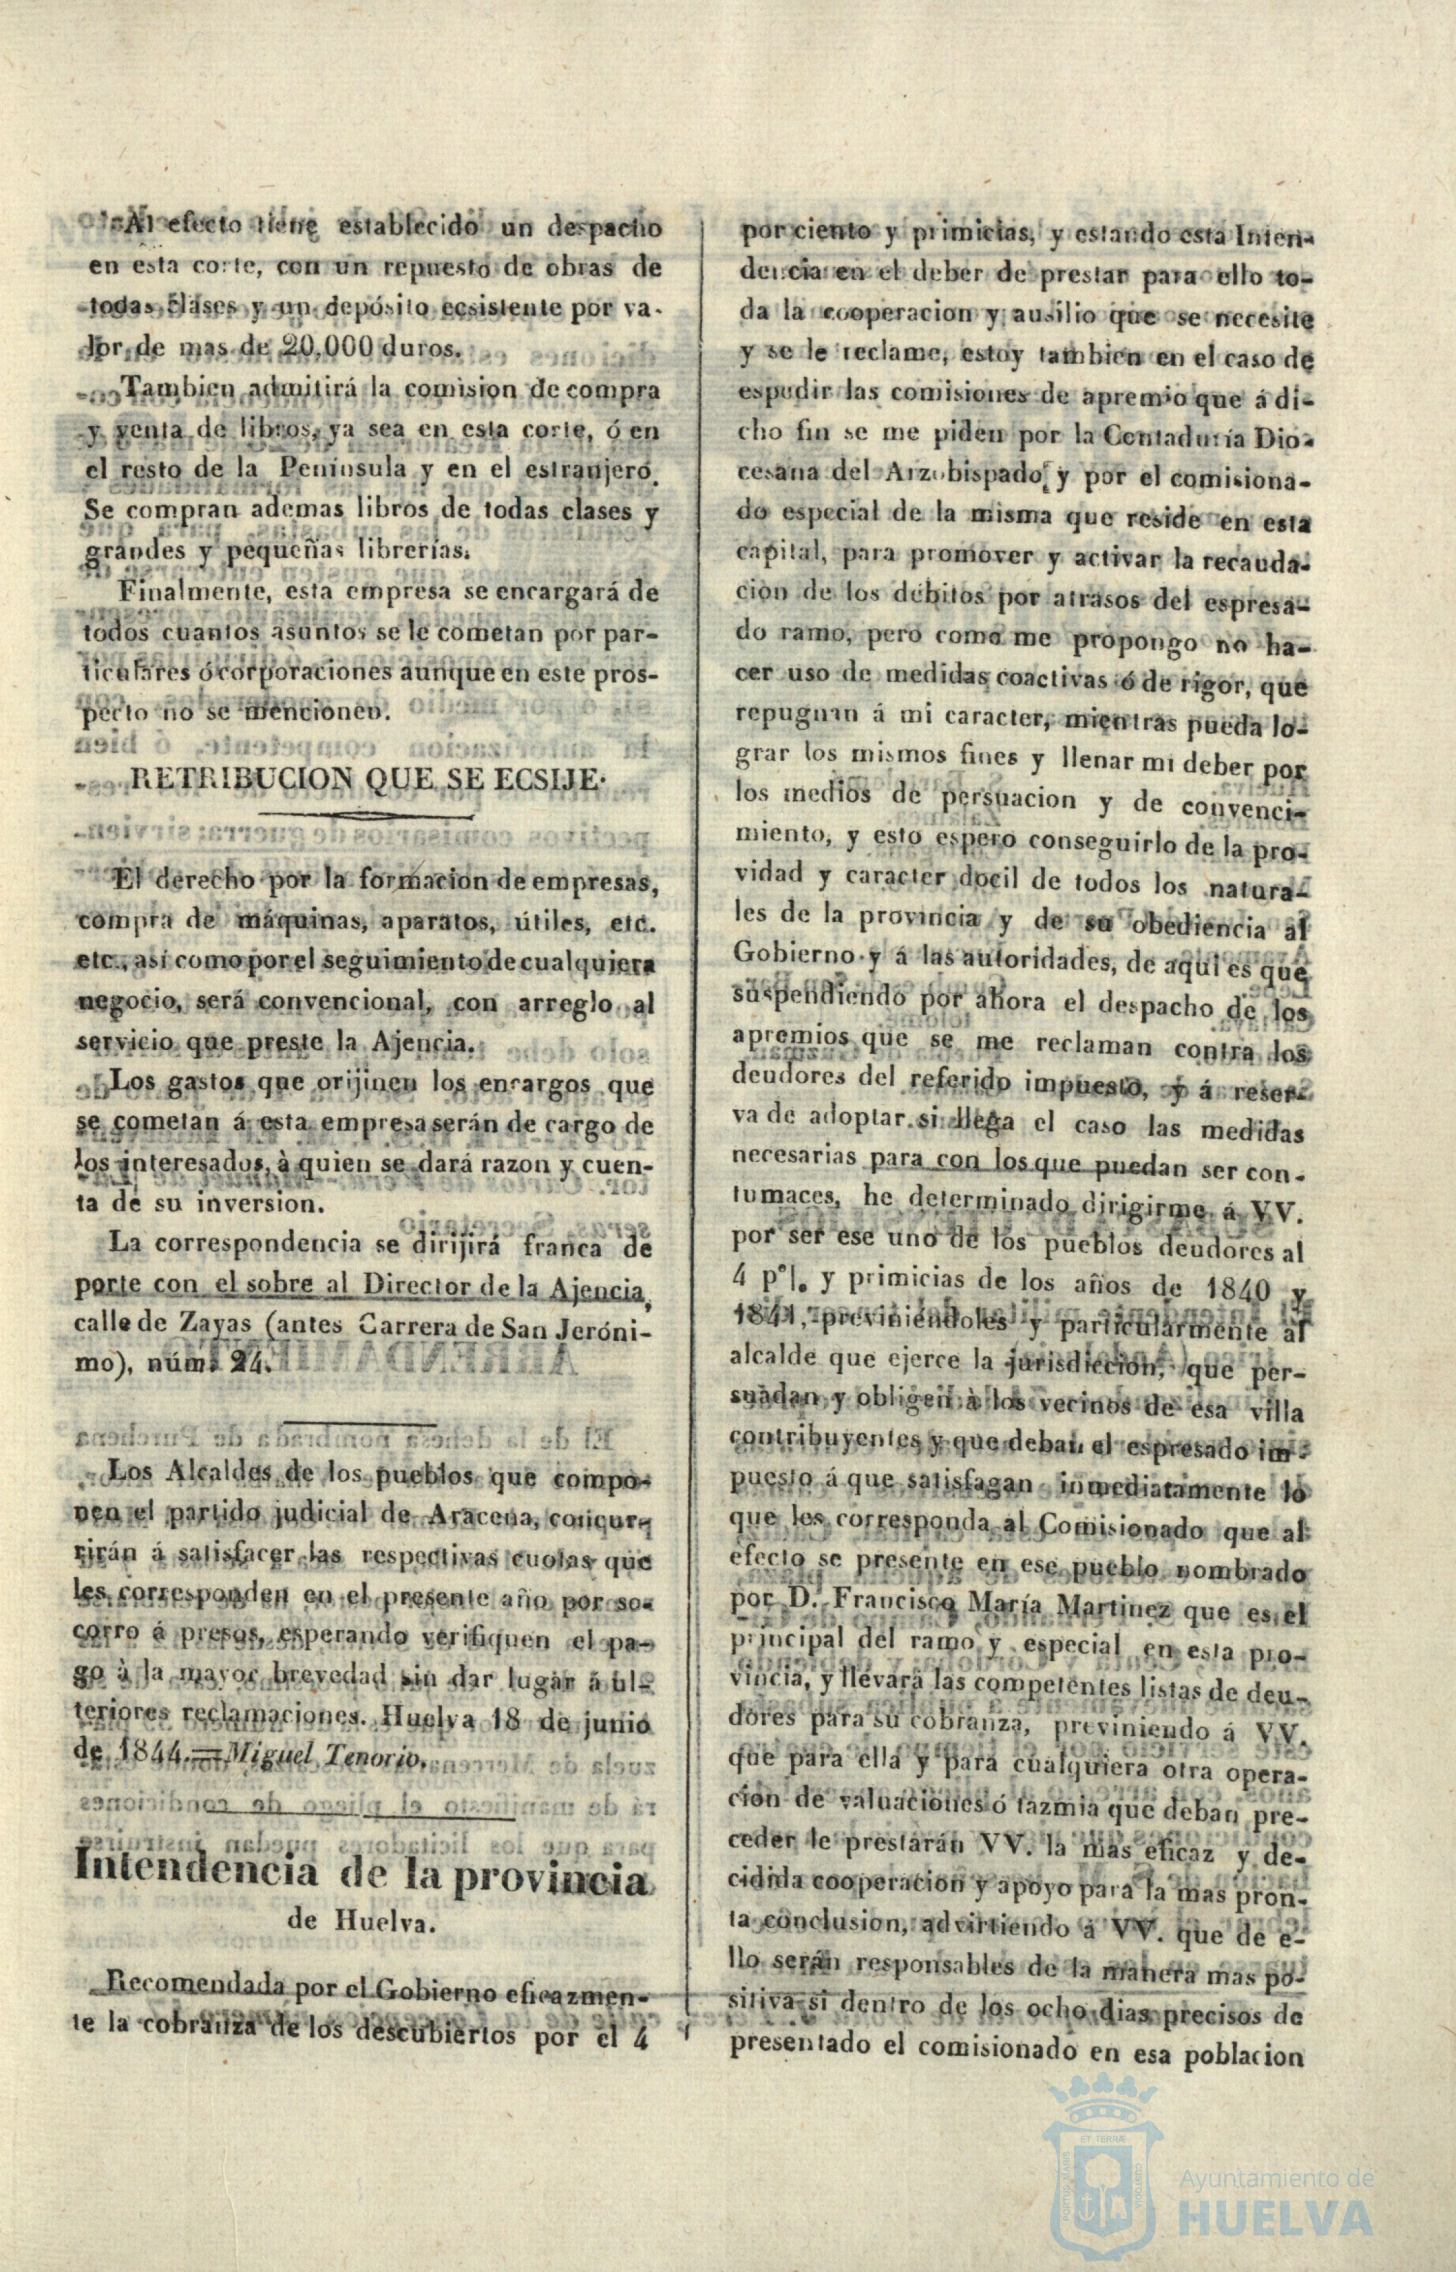 Al efecto tiene establecido un despacho
en esta corte, con un repuesto de obras de
todas clases y un depósito ecsistente por va-
lor de mas de 20,000 duros.
Tambien admitirá la comision de compra
y venta de libros, ya sea en esta corte, ó en
el resto de la Península y en el estranjero.
Se compran ademas libros de todas clases y
grandes y pequeñas librerías.
Finalmente, esta empresa se encargará de
todos cuantos asuntos se le cometan por par-
ticulares ó corporaciones aunque en este pros-
pecto no se mencionen.
RETRIBUCION QUE SE ECSIJE.
El derecho por la formacion de empresas,
compra de máquinas, aparatos, útiles, etc.
etc., así como por el seguimiento de cualquiera
negocio, será convencional, con arreglo al
servicio que preste la Ajencia.
Los gastos que orijinen los encargos que
se cometan á esta empresa serán de cargo de
los interesados, à quien se dará razon y cuen-
ta de su inversion.
La correspondencia se dirijirá franca de
porte con el sobre al Director de la Ajencia,
calle de Zayas (antes Carrera de San Jeróni-
mo), núm. 24.
Los Alcaldes de los pueblos que compo-
nen el partido judicial de Aracena, concur-
rirán á satisfacer las respectivas cuotas que
les corresponden en el presente año por so-
corro á presos, esperando verifiquen el pa-
go à la mayor brevedad sin dar lugar á ul-
teriores reclamaciones. Huelva 18 de junio
de 1844.=Miguel Tenorio.
Intendencia de la provincia
de Huelva.
Recomendada por el Gobierno eficazmen-
te la cobranza de los descubiertos por el 4
por ciento y primicias, y estando esta Inten-
dencia en el deber de prestar para ello to-
da la cooperacion y ausilio que se necesite
y se le reclame, estoy tambien en el caso de
espedir las comisiones de apremio que á di-
cho fin se me piden por la Contaduría Dio-
cesana del Arzobispado, y por el comisiona-
do especial de la misma que reside en esta
capital, para promover y activar la recauda-
cion de los débitos por atrasos del espresa-
do ramo, pero como me propongo no ha-
cer uso de medidas coactivas ó de rigor, que
repugnan á mi caracter, mientras pueda lo-
grar los mismos fines y llenar mi deber por
los medios de persuacion y de convenci-
miento, y esto espero conseguirlo de la pro-
vidad y caracter docil de todos los natura-
les de la provincia y de su obediencia al
Gobierno y á las autoridades, de aqui es que
suspendiendo por ahora el despacho de los
apremios que se me reclaman contra los
deudores del referido impuesto, y á reser-
va de adoptar si llega el caso las medidas
necesarias para con los que puedan ser con-
tumaces, he determinado dirigirme á VV.
por ser ese uno de los pueblos deudores al
4 p°|. y primicias de los años de 1840 y
1841, previniéndoles y particularmente al
alcalde que ejerce la jurisdiccion, que per-
suadan y obligen à los vecinos de esa villa
contribuyentes y que deban el espresado im-
puesto á que satisfagan inmediatamente lo
que les corresponda al Comisionado que al
efecto se presente en ese pueblo nombrado
por D. Francisco María Martinez que es el
principal del ramo y especial en esta pro-
vincia, y llevará las competentes listas de deu-
dores para su cobranza, previniendo á VV.
que para ella y para cualquiera otra opera-
cion de valuaciones ó tazmia que deban pre-
ceder le prestarán VV. la mas eficaz y de-
cidida cooperacion y apoyo para la mas pron-
ta conclusion, advirtiendo á VV. que de e-
llo serán responsables de la manera mas po-
sitiva si dentro de los ocho dias precisos de
presentado el comisionado en esa poblacion
Ayuntamiento de
HUELVA